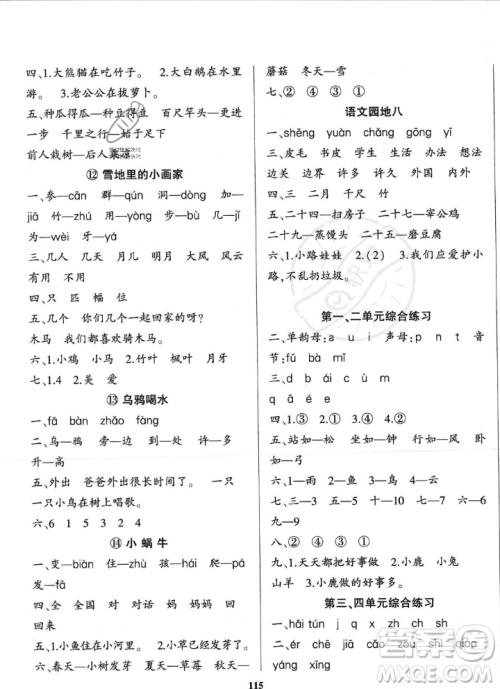 四、1.大熊猫在吃竹子。 2.大白鹅在水里
游。 3.老公公在拔萝卜。
五、种瓜得瓜—种豆得豆 百尺竿头—更进
一步 千里之行—始于足下
前人栽树—后人乘凉
⑫ 雪地里的小画家
一、参—cān 群—qún 洞—dòng 加—
jiā 竹—zhú 着—zhe 步—bù 几—jǐ
为—wèi 牙—yá
三、几人 几天 月牙 月亮 马虎 风云
有用 不用
四、只 匹 幅
五、几个 你们几个一起回家了吗?
木马 我们都喜欢骑木马。
六、1.小鸡 小马 2.竹叶 枫叶 月牙
七、1.4 2.美 爱
⑬ 乌鸦喝水
一、fā bàn zhǎo fàng
二、乌—鸦 旁—边 到—处 许—多
升—高
五、外出 爸爸外出了。 出来
一只小鸟在树上唱歌。
六、6 1 5 3 2 4
⑭ 小 蜗 牛
一、变—biàn 住—zhù 孩—hái 爬—pá
发—fā 芽—yá
四、全 全国 对 对话 妈 妈妈 回
回来
五、1.小鱼住在小河里。 2.小草已经发芽了。
蘑菇 冬天—雪
七、② ④ ③ ①
语文园地八
一、shēng yuàn chǎng gōng yǐ
三、皮毛 书皮 学生 生活 办法 想法
边关 关心
四、二 月 千尺 竹
五、二十四—扫房子 二十六—宰公鸡
二十九—蒸馒头 二十三—二十五
六、1.小路 娃娃 2.(2) 3.我们应爱护小
路,不乱扔垃圾。
第一、二单元综合练习
二、单韵母:a u i 声母:p n t 音
节:fǔ bà mǐ
三、dì chá jī lè xī
q ā é e
四、1.③ 2.① 3.② 4.④
五、站如—松 坐如—钟 行如—风 卧
如—弓
六、1—雨 2—兔 3—乌 4—云
七、三—3 五—5 八—8 六—6
九—9
八、② ④ ③ ①
九、1.天天都把好事做 2.小鹿 小兔
山羊 3.小鹿做的好事多。
第三、四单元综合练习
一、hǎi tún x zh ch sh